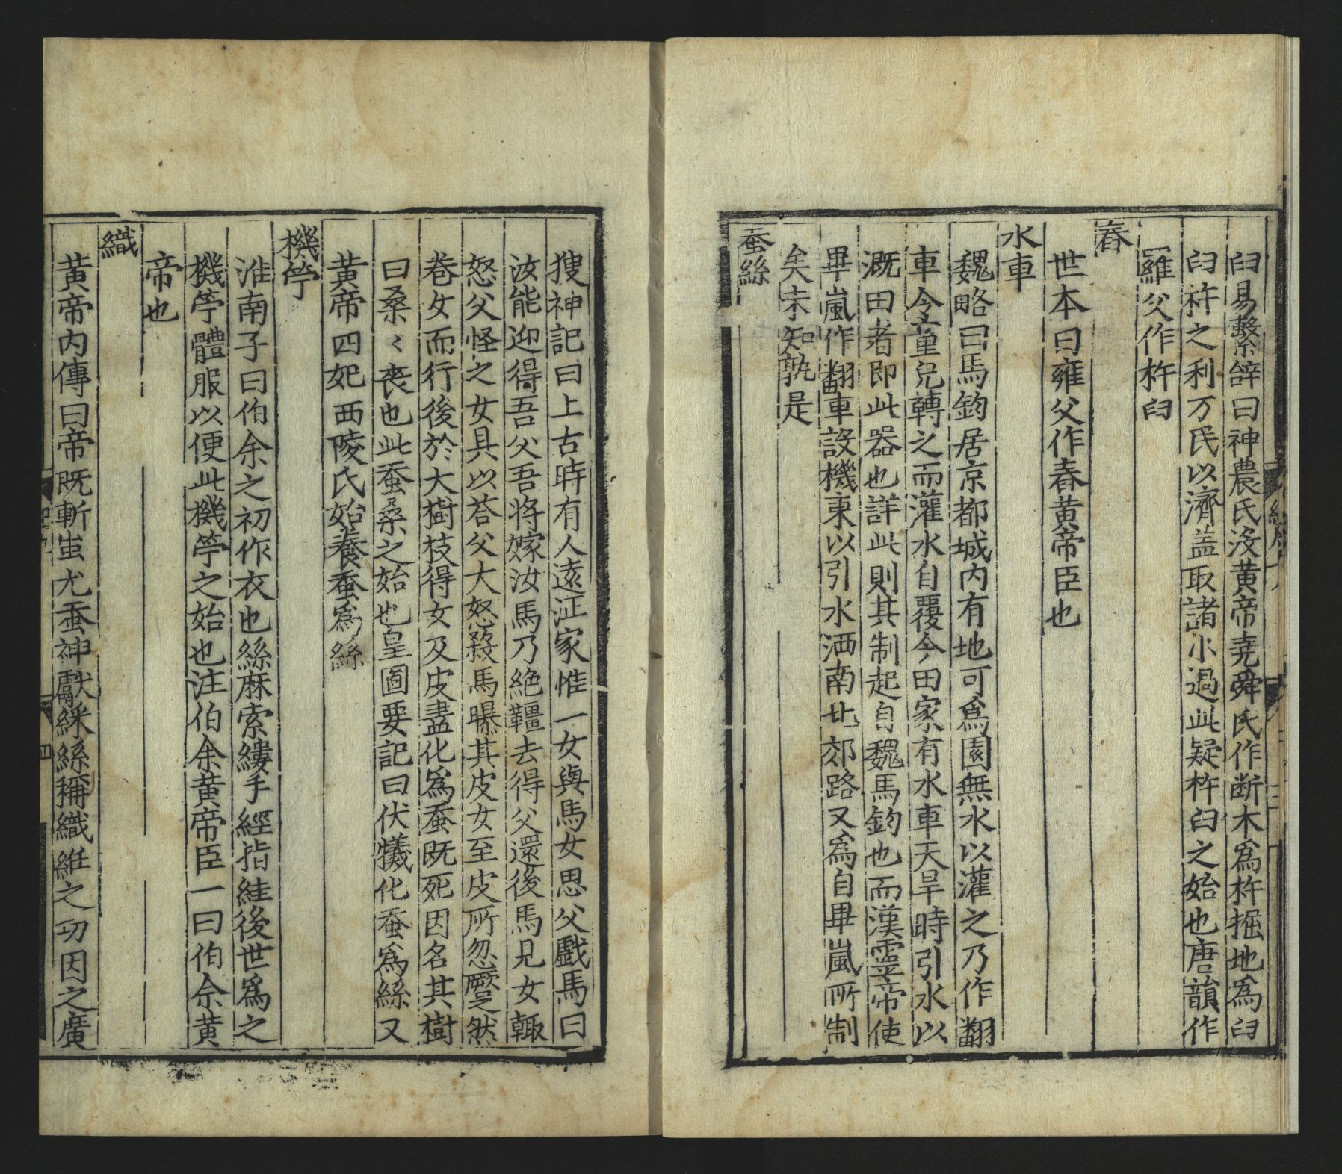 臼易繫辝曰神農氏沒黄帝尭舜氏作断木爲杵掘地爲臼
臼杵之利万民以濟盖取諸小過此疑杵臼之始也唐韻作
雍父作杵臼
舂
世本曰雍父作舂黄帝臣也
水車
魏略曰馬鈞居京都城内有地可爲園無水以灌之乃作翻
車令童兒轉之而灌水自覆今田家有水車天旱時引水以
溉田者即此器也詳此則其制起自魏馬鈞也而漢霊帝使
畢嵐作翻車設機東以引水洒南北郊路又爲自畢嵐所制
矣未知孰是
蚕絲
搜神記曰上古時有人遠征家惟一女與馬女思父戲馬曰
汝能迎得吾父吾将嫁汝馬乃絶韁去得父還後馬見女輙
怒父怪之女具以荅父大怒殺馬曝其皮女至皮所忽蹷然
卷女而行後於大樹枝得女及皮盡化爲蚕既死因名其樹
曰桑〻丧也此蚕桑之始也皇圖要記曰伏犧化蚕爲絲又
黄帝四妃西陵氏始養蚕爲絲
機竽
淮南子曰伯余之初作衣也緂麻索縷手經指絓後世爲之
機竽體服以便此機竽之始也注伯余黄帝臣一曰伯余黄
帝也
織
黄帝内傳曰帝既斬蚩尤蚕神獻綵絲稱織絍之功因之廣